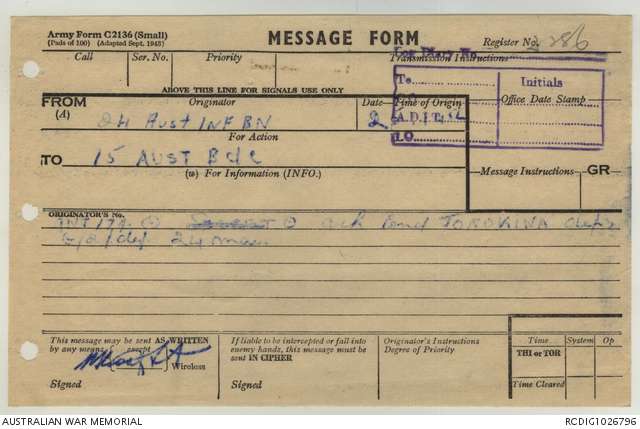 Army Form C2136 (Small)
(Pads of 100) (Adapted Sept. 1945)
MESSAGE FORM
Register No. 286
Call
Ser. No.
Priority
Transmission Instructions
Log Diary No.
ABOVE THIS LINE FOR SIGNALS USE ONLY
To
Initials
Office Date Stamp
FROM
(A)
Originator
Date
Time of Origin
A.D.I.T.
I.O.
24 Aust INF BN
2
For Action
TO
15 AUST Bde
(w) For Information (INFO.)
Message Instructions
GR
ORIGINATOR'S No.
TOROKINA
24
This message may be sent AS WRITTEN
by any means except
Wireless
Signed
If liable to be intercepted or fall into
enemy hands, this message must be
sent IN CIPHER
Signed
Originator's Instructions
Degree of Priority
Time
System
Op
THI or TOR
Time Cleared
AUSTRALIAN WAR MEMORIAL
RCDIG1026796